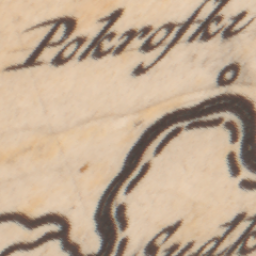 Pokrofki
Sudk